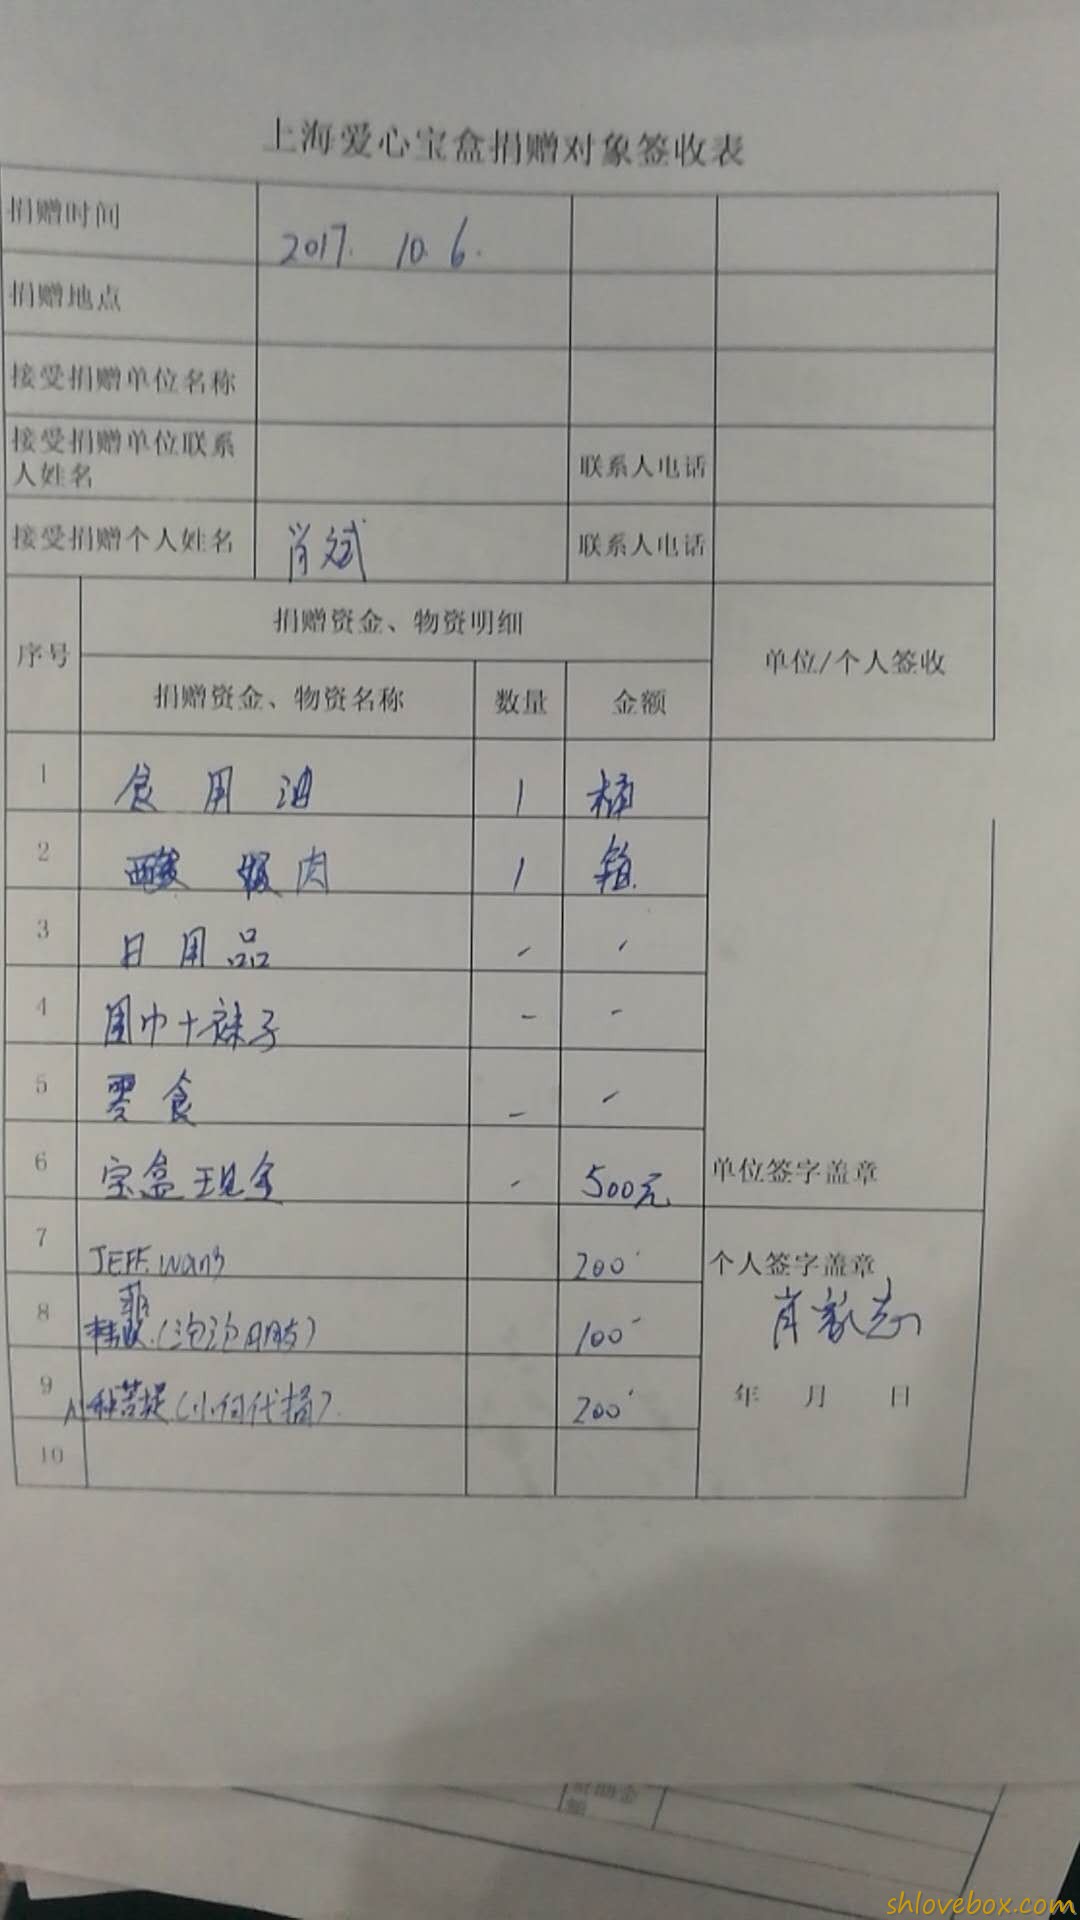 上海爱心宝盒捐赠对象签收表
捐赠时间 2017. 10. 6.
捐赠地点
接受捐赠单位名称
接受捐赠单位联系人姓名 联系人电话
接受捐赠个人姓名 肖斌 联系人电话
序号 捐赠资金、物资明细 单位/个人签收
捐赠资金、物资名称 数量 金额
1 食用油 1 桶
2 肉 1 箱
3 日用品 - -
4 围巾+袜子 - -
5 零食 - -
6 宝盒现金 - 500元
单位签字盖章
7 JEFF. wang 200
个人签字盖章
8 (泡泡朋友) 100
9 种菩提(小何代捐). 200
年 月 日
10
shlovebox.com